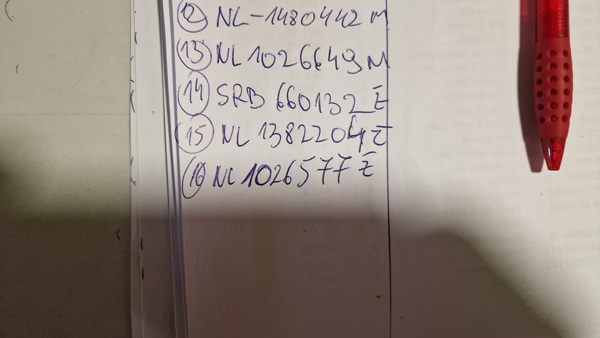 12 NL-1480442 M
13 NL 1026649 M
14 SRB 660132 Ž
15 NL 1382204 Ž
16 NL 1026577 Ž